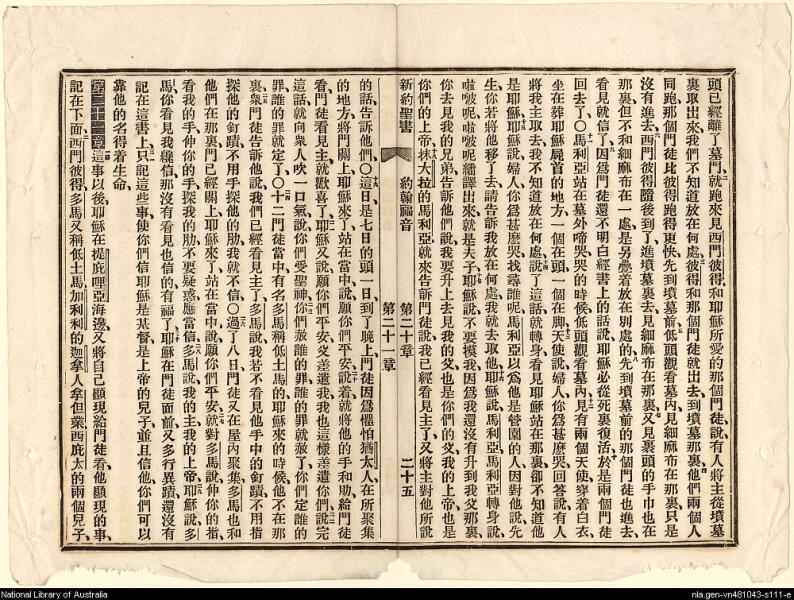 頭已經離了墓門、就跑來見西門彼得、和耶穌所愛的那個門徒、說、有人將主從墳墓
裏取出來、我們不知道放在何處、彼得和那個門徒就出去、到墳墓那裏、他們兩個人
同跑、那個門徒比彼得跑得更快、先到墳墓前、低頭觀看、見細麻布在那裏、只是
沒有進去、西門彼得隨後到了、進墳墓裏去、見細麻布在那裏、又見裹頭的手巾也在
那裏、但不和細麻布在一處、是另疊着放在別處的、先到墳墓前的那個門徒也進去、
看見就信了、因爲門徒還不明白經書上的話、說耶穌必從死裏復活、於是兩個門徒
回去了○馬利亞站在墓外啼哭、哭的時候、低頭觀看墓內、見有兩個天使、穿着白衣、
坐在葬耶穌屍首的地方、一個在頭、一個在脚、天使說、婦人你爲甚麽哭、回答說、有人
將我主取去、我不知道放在何處、說了這話、就轉身看見耶穌站在那裏、卻不知道他
是耶穌、耶穌說、婦人、你爲甚麽哭、找尋誰呢、馬利亞以爲他是營園的人、因對他說、先
生、你若將他移了去、請告訴我放在何處、我就去取他、耶穌說、馬利亞、馬利亞轉身說、
啦㗑呢、啦㗑呢繙譯出來、就是夫子、耶穌說、不要摸我、因爲我還沒有升到我父那裏、
你去見我的兄弟、告訴他們說、我要升上去見我的父、也是你們的父、我的上帝、也是
你們的上帝、抹大拉的馬利亞就來告訴門徒說、我已經看見主了、又將主對他所說
新約聖書 約翰福音 第二十章 第二十一章 二十五
的話告訴他們○這日是七日的頭一日、到了晚上、門徒因爲懼怕猶太人、在所聚集
的地方、將門關上、耶穌來了、站在當中說、願你們平安、說着、就將他的手和肋給門徒
看、門徒看見主、就歡喜了、耶穌又說、願你們平安、父差遣我、我也這樣差遣你們、說完
這話、就向衆人吹一口氣、說、你們受聖神、你們赦誰的罪、誰的罪就赦了、你們定誰的
罪、誰的罪就定了○十二門徒當中、有名多馬稱低土馬的、耶穌來的時候、他不在那
裏、衆門徒告訴他說、我們已經看見主了、多馬說、我若不看見他手中的釘蹟、不用指
探他的釘蹟、不用手探他的肋、我就不信○過了八日、門徒又在屋內聚集、多馬也和
他們在那裏、門已經關上、耶穌來了、站在當中說、願你們平安、就對多馬說、伸你的指
看我的手、伸你的手、探我的肋、不要疑惑、應當信、多馬說、我的主、我的上帝、耶穌說、多
馬、你看見我纔信、那沒有看見也信的、有福了、耶穌在門徒面前、又多行異蹟、還沒有
記在這書上、只記這些事、使你們信耶穌是基督、是上帝的兒子、並且信他、你們可以
靠他的名得着生命
第二十一章 這事以後、耶穌在提庇哩亞海邊、又將自己顯現給門徒看、他顯現的事
記在下面、西門彼得、多馬又稱低土馬、加利利的迦拿人拿但業、西庇太的兩個兒子、
National Library of Australia
nla.gen-vn481043-s111-e